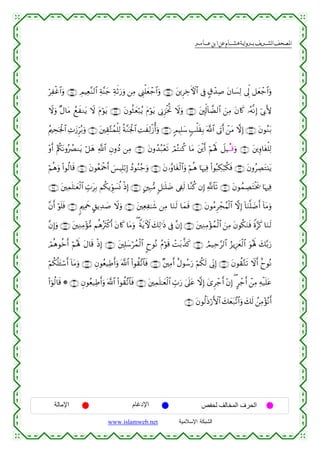 المصحف الشريف برواية هشام عن ابن عامر
وَٱجْعَل لِّى لِسَانَ صِدْقٍ فِى ٱلْءَاخِرِينَ وَٱجْعَلْنِى مِن وَرَثَةِ جَنَّةِ ٱلنَّعِيمِ وَٱغْفِرْ
لِأَبِى إِنَّهُۥ كَانَ مِنَ ٱلضَّالِّينَ وَلَا تُخْزِنِى يَوْمَ يُبْعَثُونَ يَوْمَ لَا يَنفَعُ مَالٌ وَلَا
بَنُونَ إِلَّا مَنْ أَتَى ٱللَّهَ بِقَلْبٍ سَلِيمٍ وَأُزْلِفَتِ ٱلْجَنَّةُ لِلْمُتَّقِينَ وَبُرِّزَتِ ٱلْجَحِيمُ
لِلْغَاوِينَ وَقِيلَ لَهُمْ أَيْنَ مَا كُنتُمْ تَعْبُدُونَ مِن دُونِ ٱللَّهِ هَلْ يَنصُرُونَكُمْ أَوْ
يَنتَصِرُونَ فَكُبْكِبُوا۟ فِيهَا هُمْ وَٱلْغَاوُۥنَ وَجُنُودُ إِبْلِيسَ أَجْمَعُونَ قَالُوا۟ وَهُمْ
فِيهَا يَخْتَصِمُونَ تَٱللَّهِ إِن كُنَّا لَفِى ضَلَٰلٍ مُّبِينٍ إِذْ نُسَوِّيكُم بِرَبِّ ٱلْعَٰلَمِينَ
وَمَآ أَضَلَّنَآ إِلَّا ٱلْمُجْرِمُونَ فَمَا لَنَا مِن شَٰفِعِينَ وَلَا صَدِيقٍ حَمِيمٍ فَلَوْ أَنَّ
لَنَا كَرَّةً فَنَكُونَ مِنَ ٱلْمُؤْمِنِينَ إِنَّ فِى ذَٰلِكَ لَءَايَةً وَمَا كَانَ أَكْثَرُهُم مُّؤْمِنِينَ وَإِنَّ
رَبَّكَ لَهُوَ ٱلْعَزِيزُ ٱلرَّحِيمُ كَذَّبَتْ قَوْمُ نُوحٍ ٱلْمُرْسَلِينَ إِذْ قَالَ لَهُمْ أَخُوهُمْ
نُوحٌ أَلَا تَتَّقُونَ إِنِّى لَكُمْ رَسُولٌ أَمِينٌ فَٱتَّقُوا۟ ٱللَّهَ وَأَطِيعُونِ وَمَآ أَسْـَٔلُكُمْ
عَلَيْهِ مِنْ أَجْرٍ إِنْ أَجْرِىَ إِلَّا عَلَىٰ رَبِّ ٱلْعَٰلَمِينَ فَٱتَّقُوا۟ ٱللَّهَ وَأَطِيعُونِ قَالُوٓا۟
أَنُؤْمِنُ لَكَ وَٱتَّبَعَكَ ٱلْأَرْذَلُونَ
الحرف المخالف لحفص الإدغام الإمالة
الشبكة الإسلامية www.islamweb.net